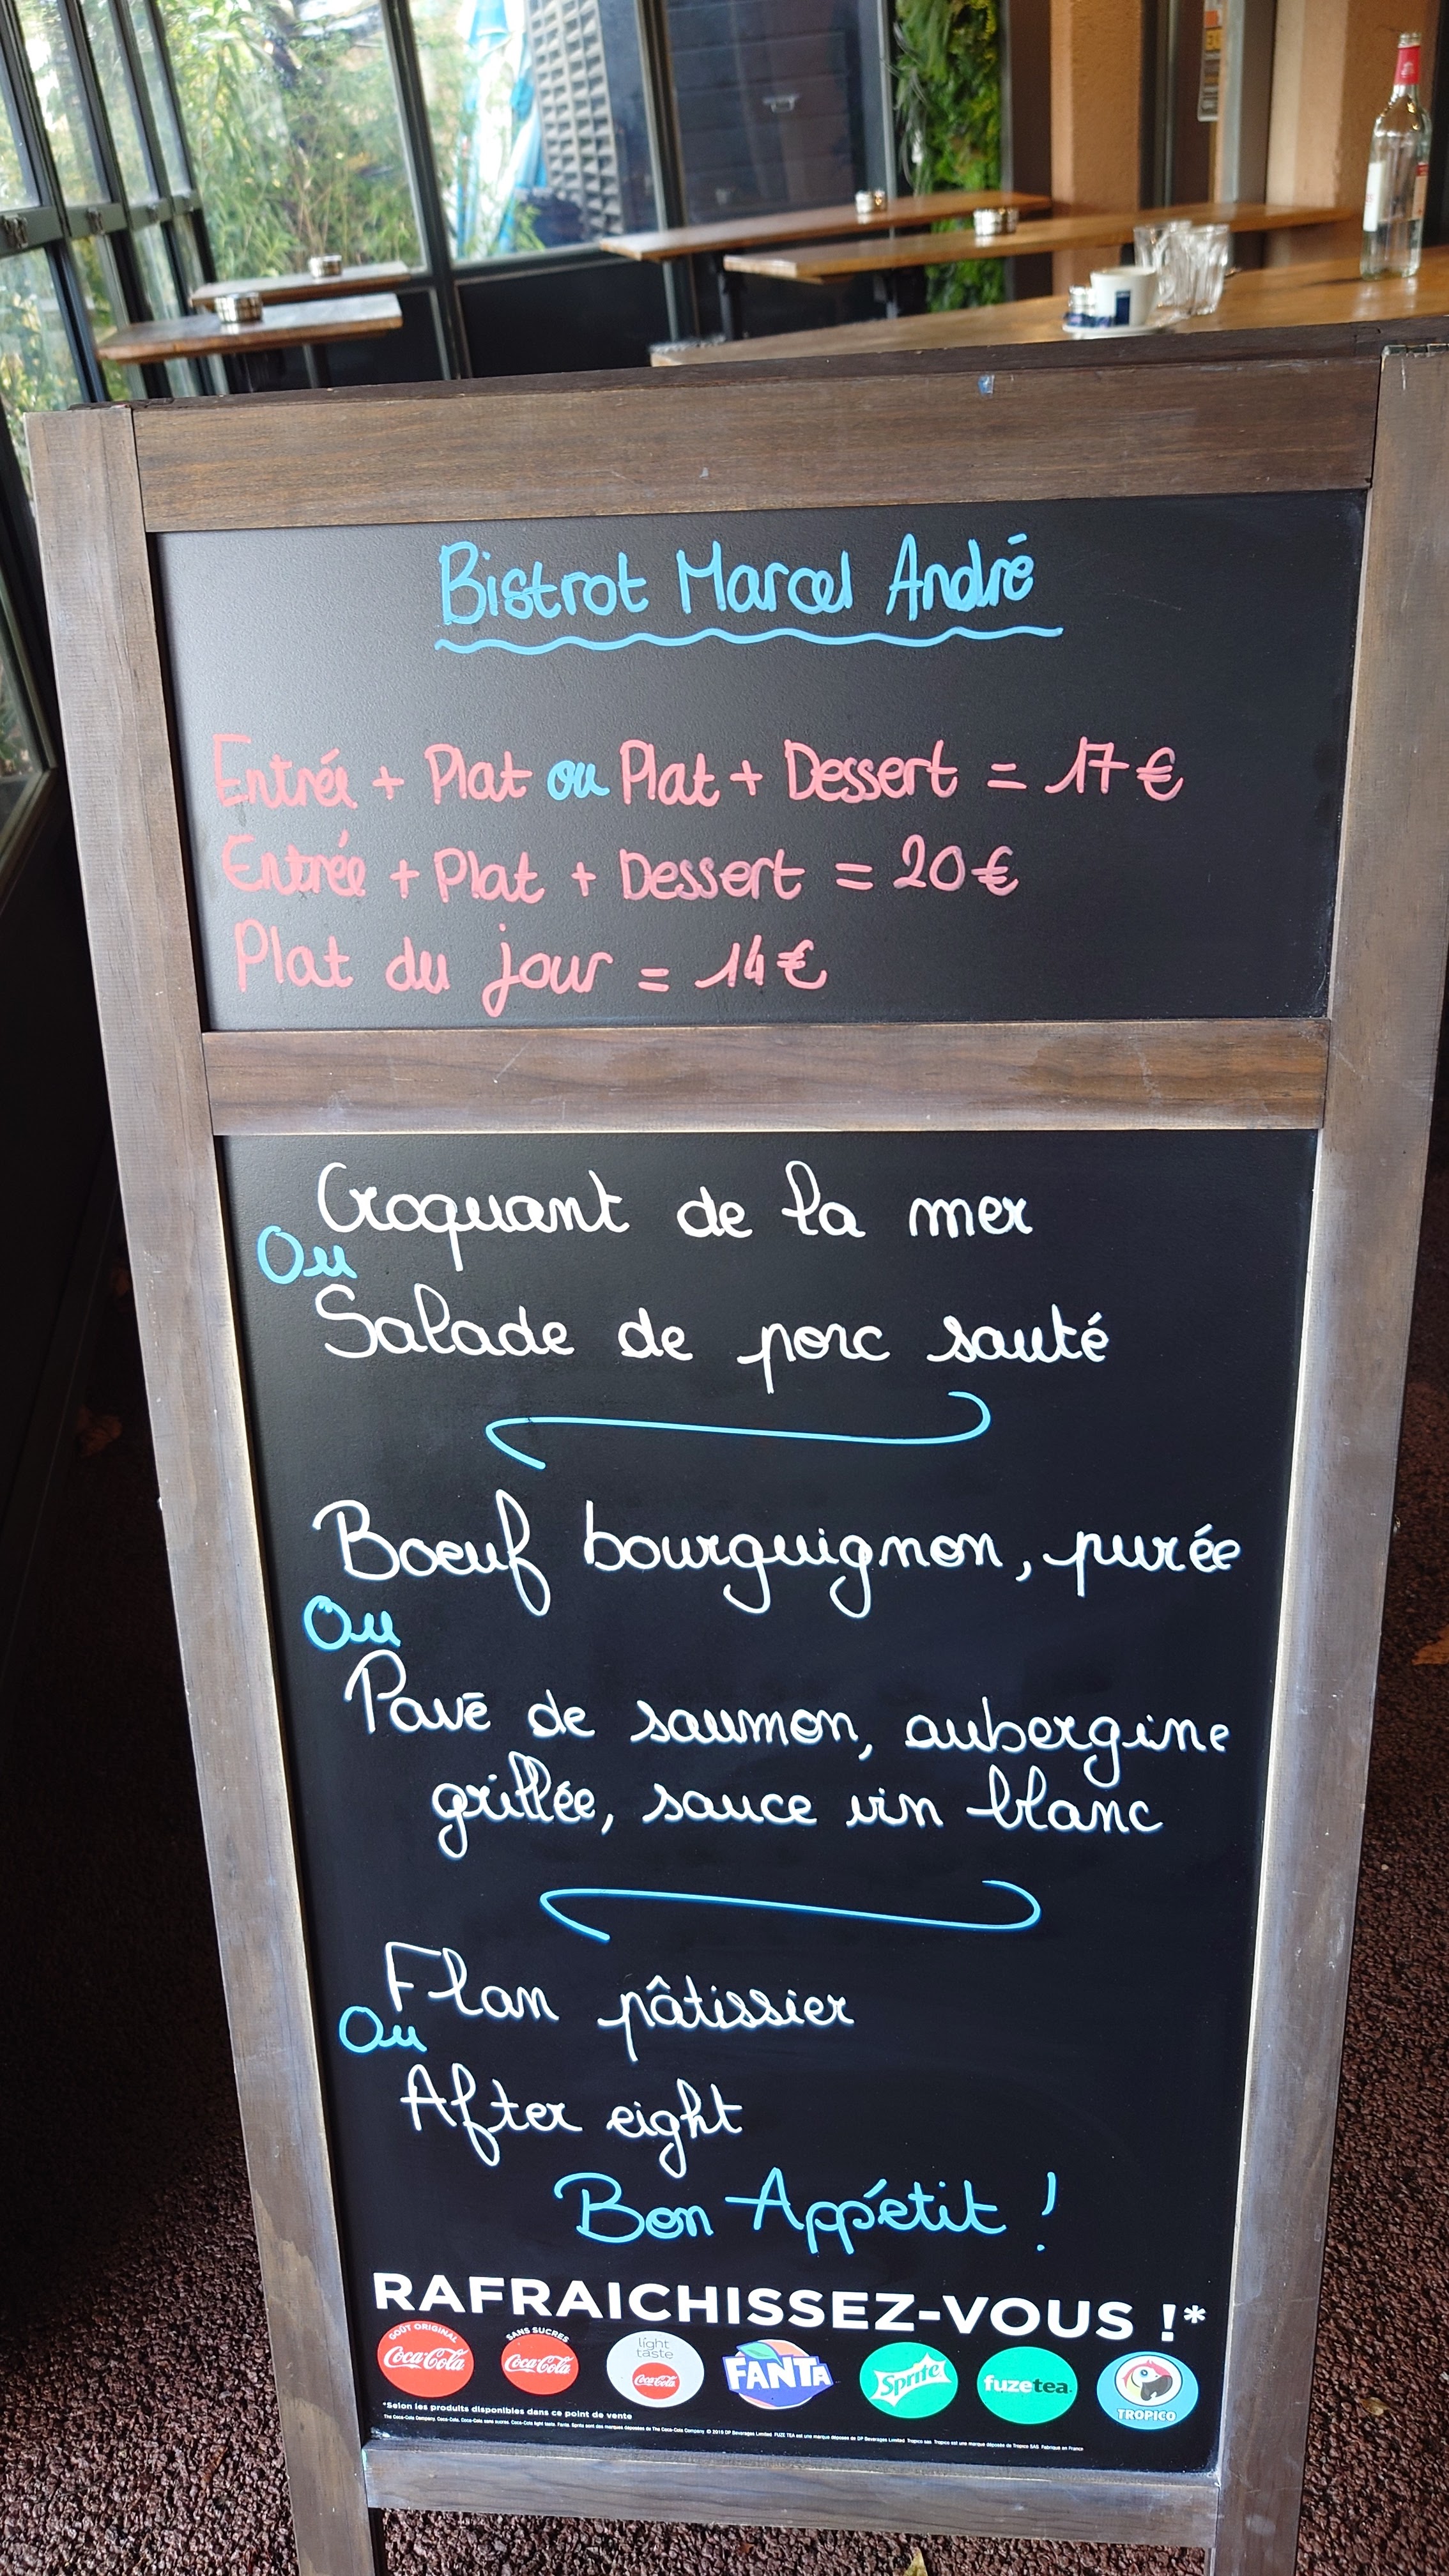 Bistrot Marcel André
Entrée + Plat ou Plat + Dessert = 17€
Entrée + Plat + Dessert = 20€
Plat du jour = 14€
Croquant de la mer
Ou
Salade de porc sauté
Boeuf bourguignon, purée
Ou
Pavé de saumon, aubergine
grillée, sauce vin blanc
Flan pâtissier
Ou
After eight
Bon Appétit !
RAFRAICHISSEZ-VOUS !*
GOÛT ORIGINAL
Coca-Cola
SANS SUCRES
Coca-Cola
light
taste
Coca-Cola
FANTA
Sprite
fuzetea
TROPICO
*Selon les produits disponibles dans ce point de vente